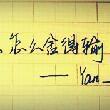 、怎么舍得输
— Yan